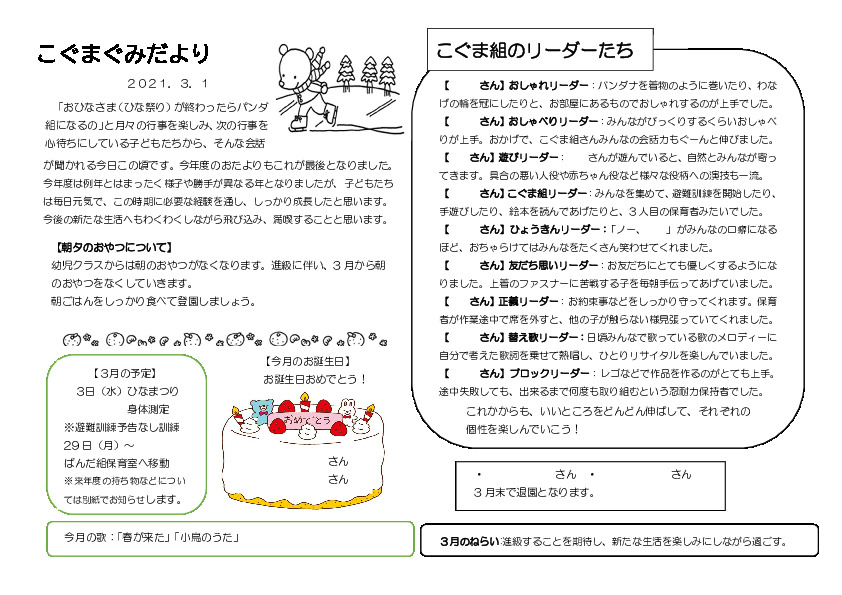 こぐまぐみだより
２０２１．３．１
「おひなさま（ひな祭り）が終わったらパンダ
組になるの」と月々の行事を楽しみ、次の行事を
心待ちにしている子どもたちから、そんな会話
が聞かれる今日この頃です。今年度のおたよりもこれが最後となりました。
今年度は例年とはまったく様子や勝手が異なる年となりましたが、子どもたち
は毎日元気で、この時期に必要な経験を通し、しっかり成長したと思います。
今後の新たな生活へもわくわくしながら飛び込み、満喫することと思います。
【朝夕のおやつについて】
幼児クラスからは朝のおやつがなくなります。進級に伴い、３月から朝
のおやつをなくしていきます。
朝ごはんをしっかり食べて登園しましょう。
【３月の予定】
３日（水）ひなまつり
身体測定
※避難訓練予告なし訓練
29日（月）～
ぱんだ組保育室へ移動
※来年度の持ち物などについ
ては別紙でお知らせします。
【今月のお誕生日】
お誕生日おめでとう！
おめでとう
さん
さん
今月の歌：「春が来た」「小鳥のうた」
こぐま組のリーダーたち
【　　さん】おしゃれリーダー：バンダナを着物のように巻いたり、わな
げの輪を冠にしたりと、お部屋にあるものでおしゃれするのが上手でした。
【　　さん】おしゃべりリーダー：みんながびっくりするくらいおしゃべ
りが上手。おかげで、こぐま組さんみんなの会話力もぐーんと伸びました。
【　　さん】遊びリーダー：　　さんが遊んでいると、自然とみんなが寄っ
てきます。具合の悪い人役や赤ちゃん役など様々な役柄への演技も一流。
【　　さん】こぐま組リーダー：みんなを集めて、避難訓練を開始したり、
手遊びしたり、絵本を読んであげたりと、３人目の保育者みたいでした。
【　　さん】ひょうきんリーダー：「ノー、　　」がみんなの口癖になる
ほど、おちゃらけてはみんなをたくさん笑わせてくれました。
【　　さん】友だち思いリーダー：お友だちにとても優しくするようにな
りました。上着のファスナーに苦戦する子を毎朝手伝ってあげていました。
【　　さん】正義リーダー：お約束事などをしっかり守ってくれます。保育
者が作業途中で席を外すと、他の子が触らない様見張っていてくれました。
【　　さん】替え歌リーダー：日頃みんなで歌っている歌のメロディーに
自分で考えた歌詞を乗せて熱唱し、ひとりリサイタルを楽しんでいました。
【　　さん】ブロックリーダー：レゴなどで作品を作るのがとても上手。
途中失敗しても、出来るまで何度も取り組むという忍耐力保持者でした。
これからも、いいところをどんどん伸ばして、それぞれの
個性を楽しんでいこう！
・　　　　さん　・　　　　さん
３月末で退園となります。
３月のねらい:進級することを期待し、新たな生活を楽しみにしながら過ごす。